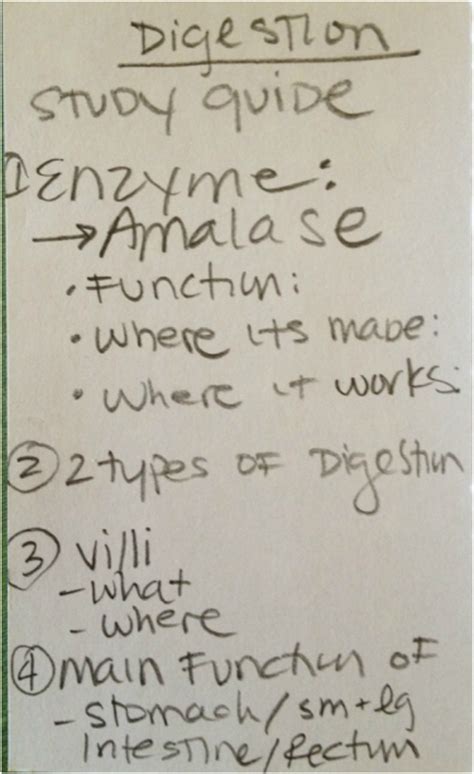 Digestion
Study Guide
① Enzyme:
→ Amalase
• Function:
• Where its made:
• Where it works:
② 2 types of Digestion
③ Villi
- what
- where
④ Main Function of
- stomach/sm+lg
Intestine/Rectum